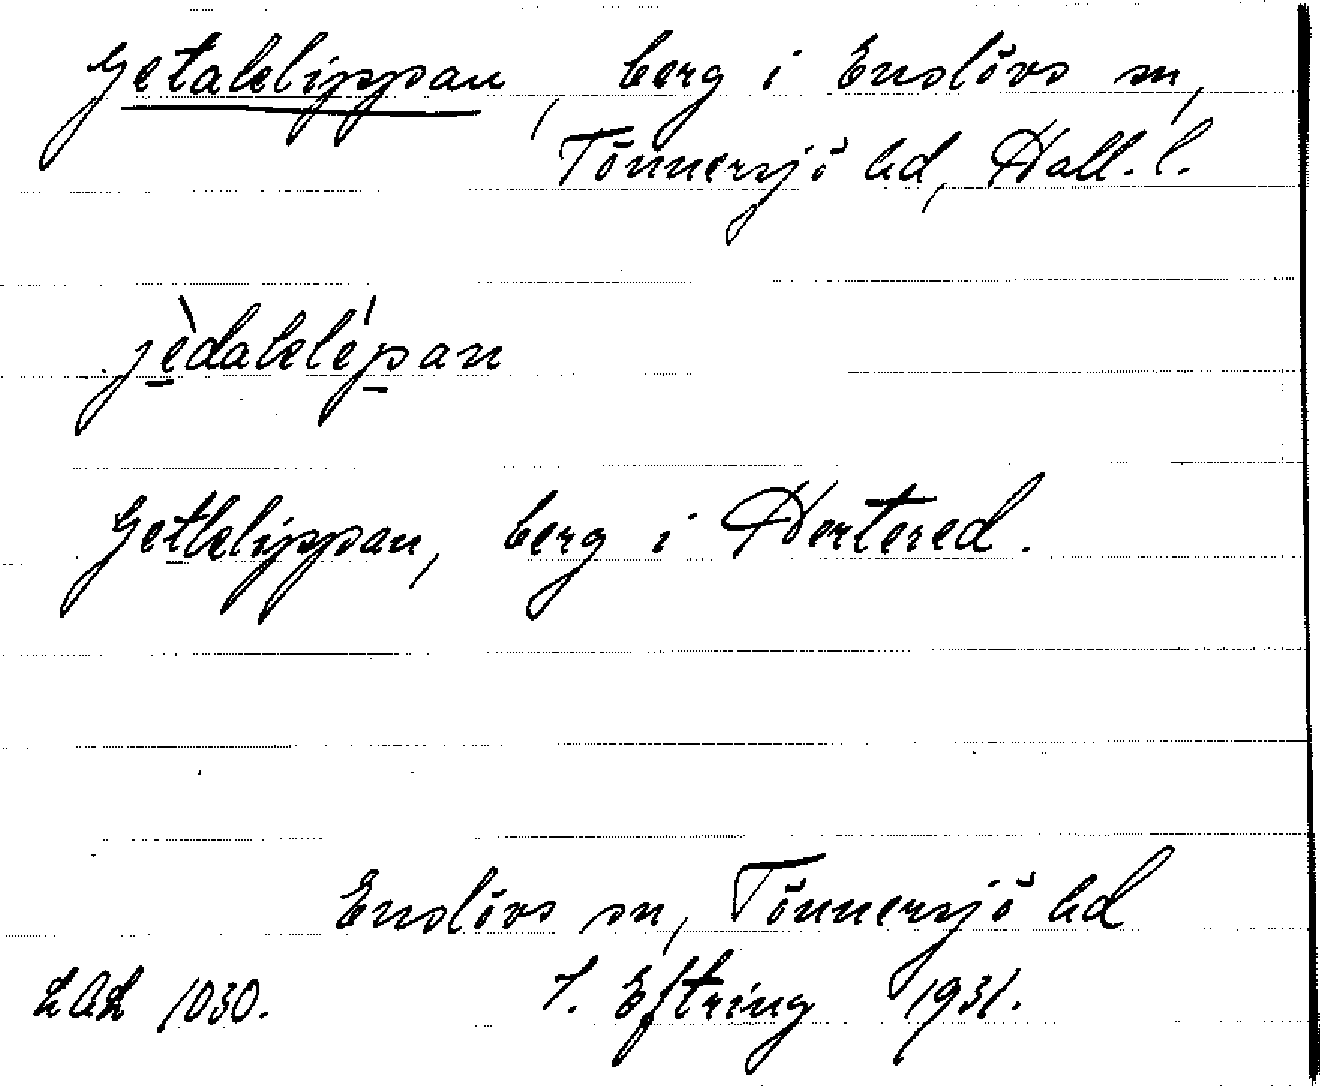 Getaklippan, berg i Enslövs sn,
Tönnersjö hd, Hall. l.
jèdaklépan
Getklippan, berg i Hertered.
Enslövs sn, Tönnersjö hd
LAL 1030. J. Eftring 1931.